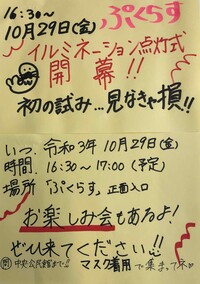 16:30〜 ぷくらす
10月29日(金)
イルミネーション点灯式
開幕!!
初の試み…見なきゃ損!!
いつ. 令和3年10月29日(金)
時間. 16:30〜17:00(予定)
場所 「ぷくらす」正面入口
お楽しみ会もあるよ!
ぜひ来てください!!
中央公民館まで!! マスク着用で集まってネ